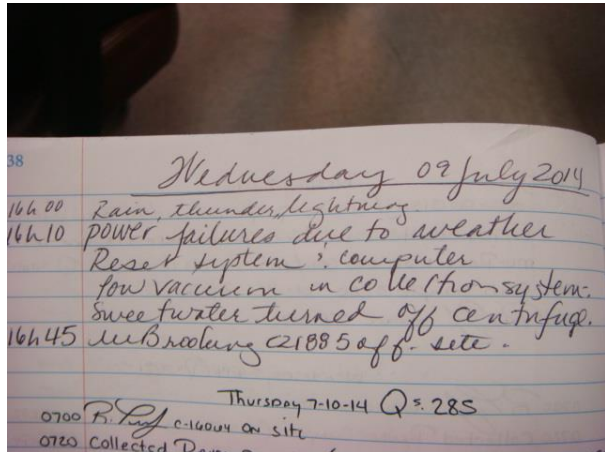 38
Wednesday 09 July 2014
16h00 Rain, thunder, lightning
16h10 power failures due to weather
Reset system : computer
low vacuum in collection system.
Sweetwater turned off centrifuge.
16h45 C21885 off site.
Thursday 7-10-14 Qs. 285
0700 R. C-16044 on site
0720 Collected